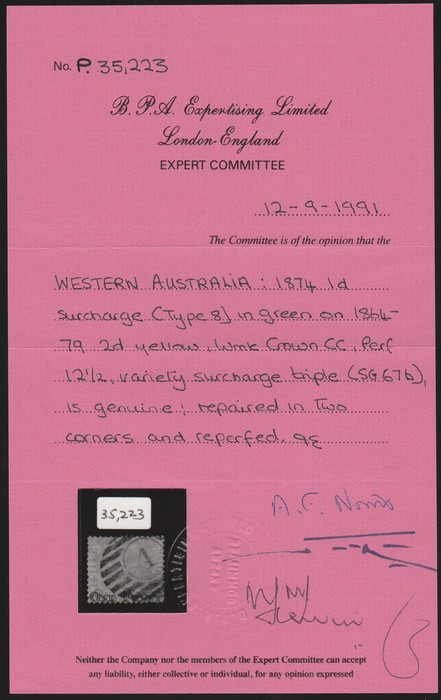 No. P. 35,223
B.P.A. Expertising Limited
London-England
EXPERT COMMITTEE
12-9-1991
The Committee is of the opinion that the
WESTERN AUSTRALIA : 1874 1d
surcharge (Type 8) in green on 1864-
79 2d yellow, Wmk Crown CC, Perf
12½, variety surcharge triple (SG67b),
is genuine, repaired in two
corners and reperfed.
35,223
A.F. Norris
Neither the Company nor the members of the Expert Committee can accept
any liability, either collective or individual, for any opinion expressed